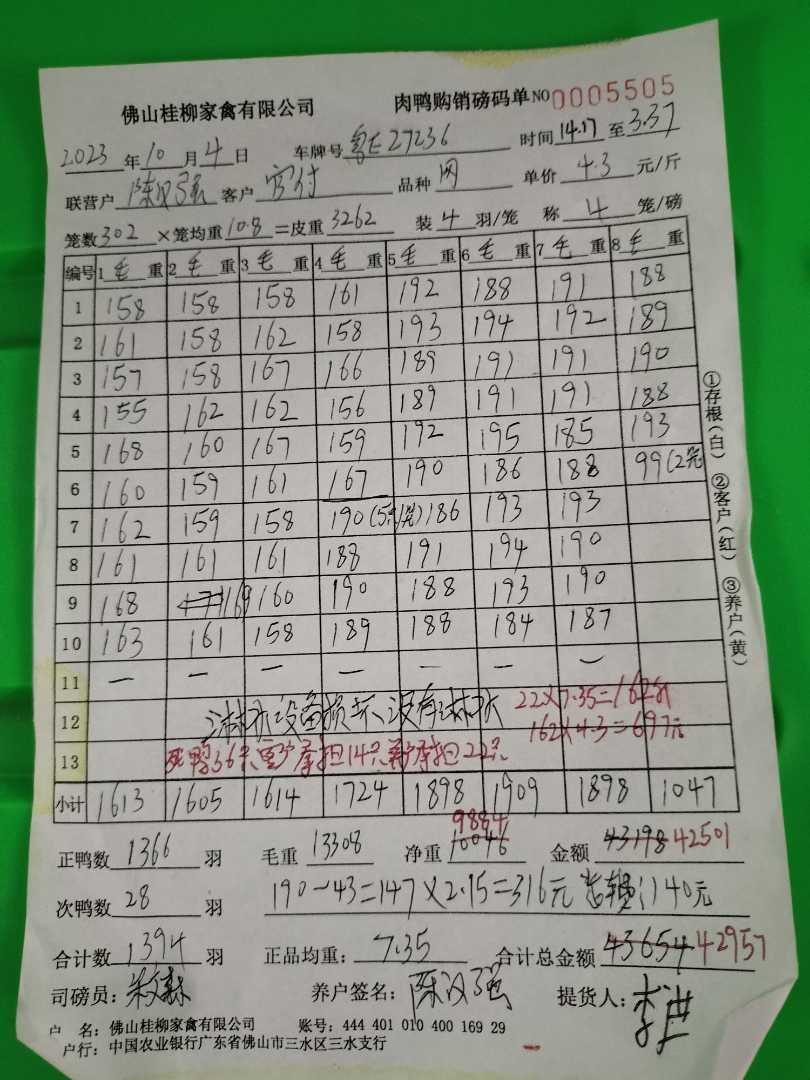 佛山桂柳家禽有限公司 肉鸭购销磅码单 NO 0005505
2023 年 10 月 4 日 车牌号 27236 时间 14.17 至 3.37
联营户 陈汉强 客户 官付 品种 网 单价 4.3 元/斤
笼数 302 ×笼均重 10.8 =皮重 3262 装 4 羽/笼 称 4 笼/磅
编号 1 毛 重 2 毛 重 3 毛 重 4 毛 重 5 毛 重 6 毛 重 7 毛 重 8 毛 重
1 158 158 158 161 192 188 191 188
2 161 158 162 158 193 194 192 189
3 157 158 167 166 189 191 191 190
4 155 162 162 156 189 191 191 188
5 168 160 167 159 192 195 185 193
6 160 159 161 167 190 186 188 99 (2笼
7 162 159 158 190 186 193 193
8 161 161 161 188 191 194 190
9 168 169 160 190 188 193 190
10 163 161 158 189 188 184 187
11 — — — — — — —
12 淋水设备损坏没有淋水 22×7.35=162斤
162×4.3=697元
13 死鸭36只 客户承担14只养户承担22只
小计 1613 1605 1614 1724 1898 1909 1898 1047
9884
正鸭数 1366 羽 毛重 13308 净重 10046 金额 43198 42501
次鸭数 28 羽 190-43=147×2.15=316元 140元
合计数 1394 羽 正品均重: 7.35 合计总金额 43654 42957
司磅员: 养户签名: 陈汉强 提货人: 李进
户 名: 佛山桂柳家禽有限公司 账号: 444 401 010 400 169 29
户行: 中国农业银行广东省佛山市三水区三水支行
①存根(白) ②客户(红) ③养户(黄)